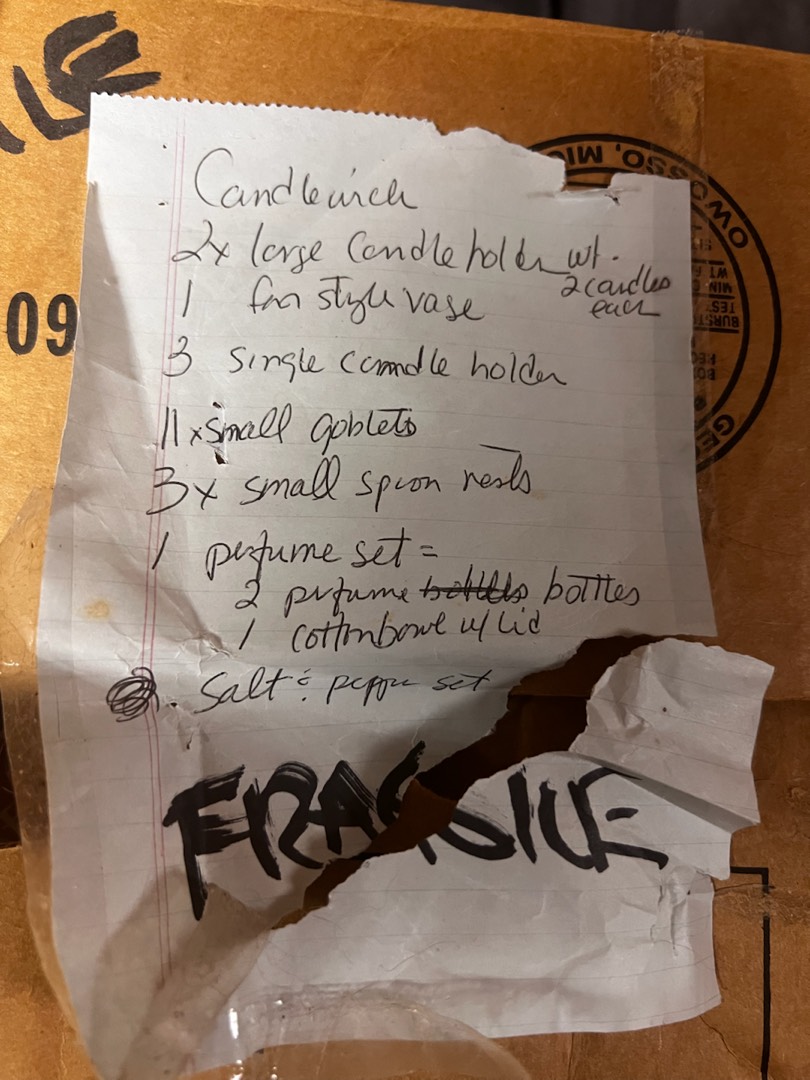 LE
OWOSSO, MIC
09
Candlewick
2x large Candle holder wt.
2 candles
each
1 fan style vase
3 single candle holder
11 x small goblets
3x small spoon rests
1 perfume set =
2 perfume bottles bottles
1 cotton bowl w/ Lid
Salt & pepper set
FRAGILE